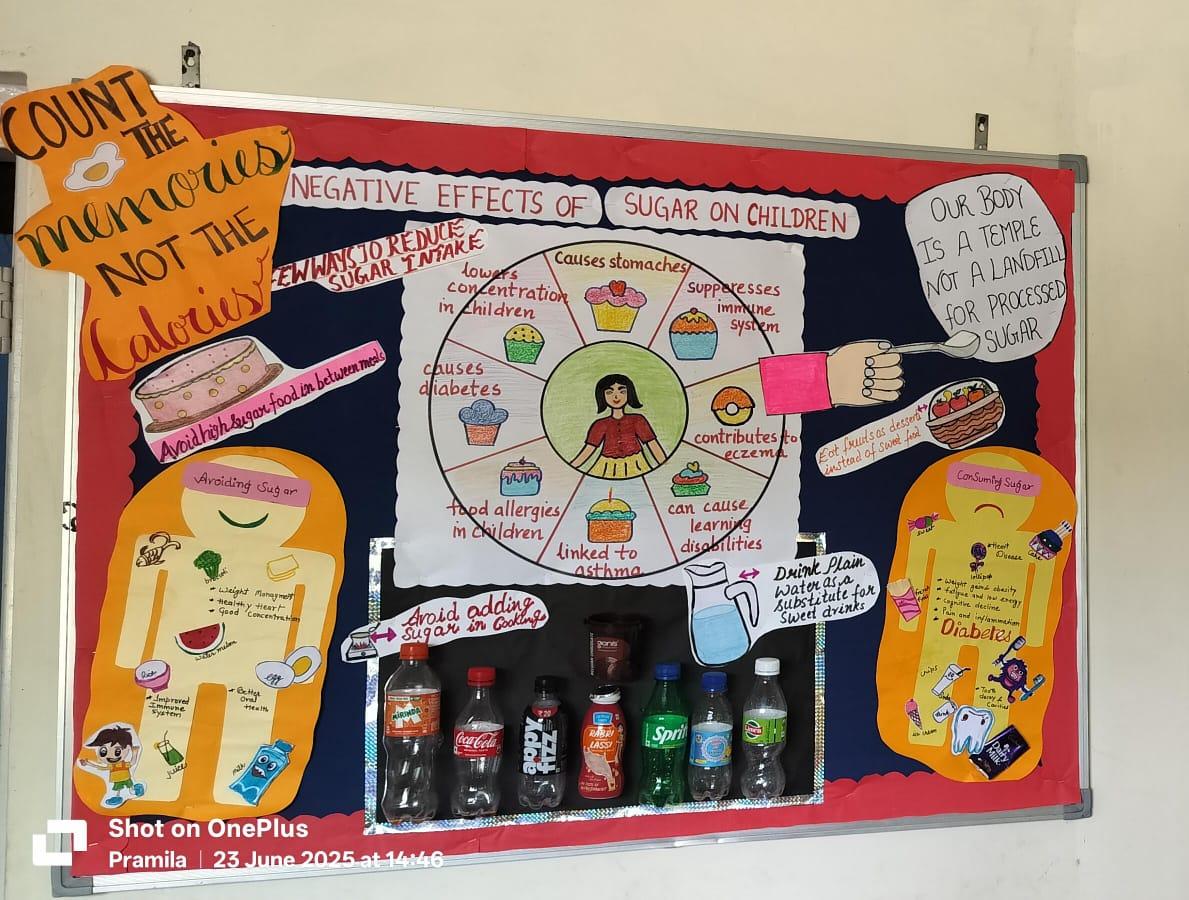 COUNT
THE
memories
NOT THE
Calories
NEGATIVE EFFECTS OF
SUGAR ON CHILDREN
OUR BODY
IS A TEMPLE
NOT A LANDFILL
FOR PROCESSED
SUGAR
FEW WAYS TO REDUCE
SUGAR INTAKE
Causes stomaches
suppresses
immune
system
contributes to
eczema
can cause
learning
disabilities
linked to
asthma
food allergies
in children
causes
diabetes
lowers
concentration
in children
Avoid high sugar food in between meals
Eat fruits as dessert
instead of sweet food
Avoid adding
Sugar in Cooking
Drink Plain
Water as a
Substitute for
Sweet drinks
Avoiding Sugar
• Weight Managment
• Healthy Heart
• Good Concentration
water melon
egg
• Improved
Immune
System
• Better
Oral
Health
juice
milk
Consuming Sugar
sweet
Cake
• Heart
Disease
lollipop
• Weight gain & obesity
• fatigue and low energy
• Cognitive decline
• Pain and inflammation
Diabetes
chips
• Tooth
decay &
Cavities
ice cream
Dairy
Milk
MIRINDA
Coca-Cola
appy
fizz
RABRI
LASSI
Sprite
Shot on OnePlus
Pramila | 23 June 2025 at 14:46